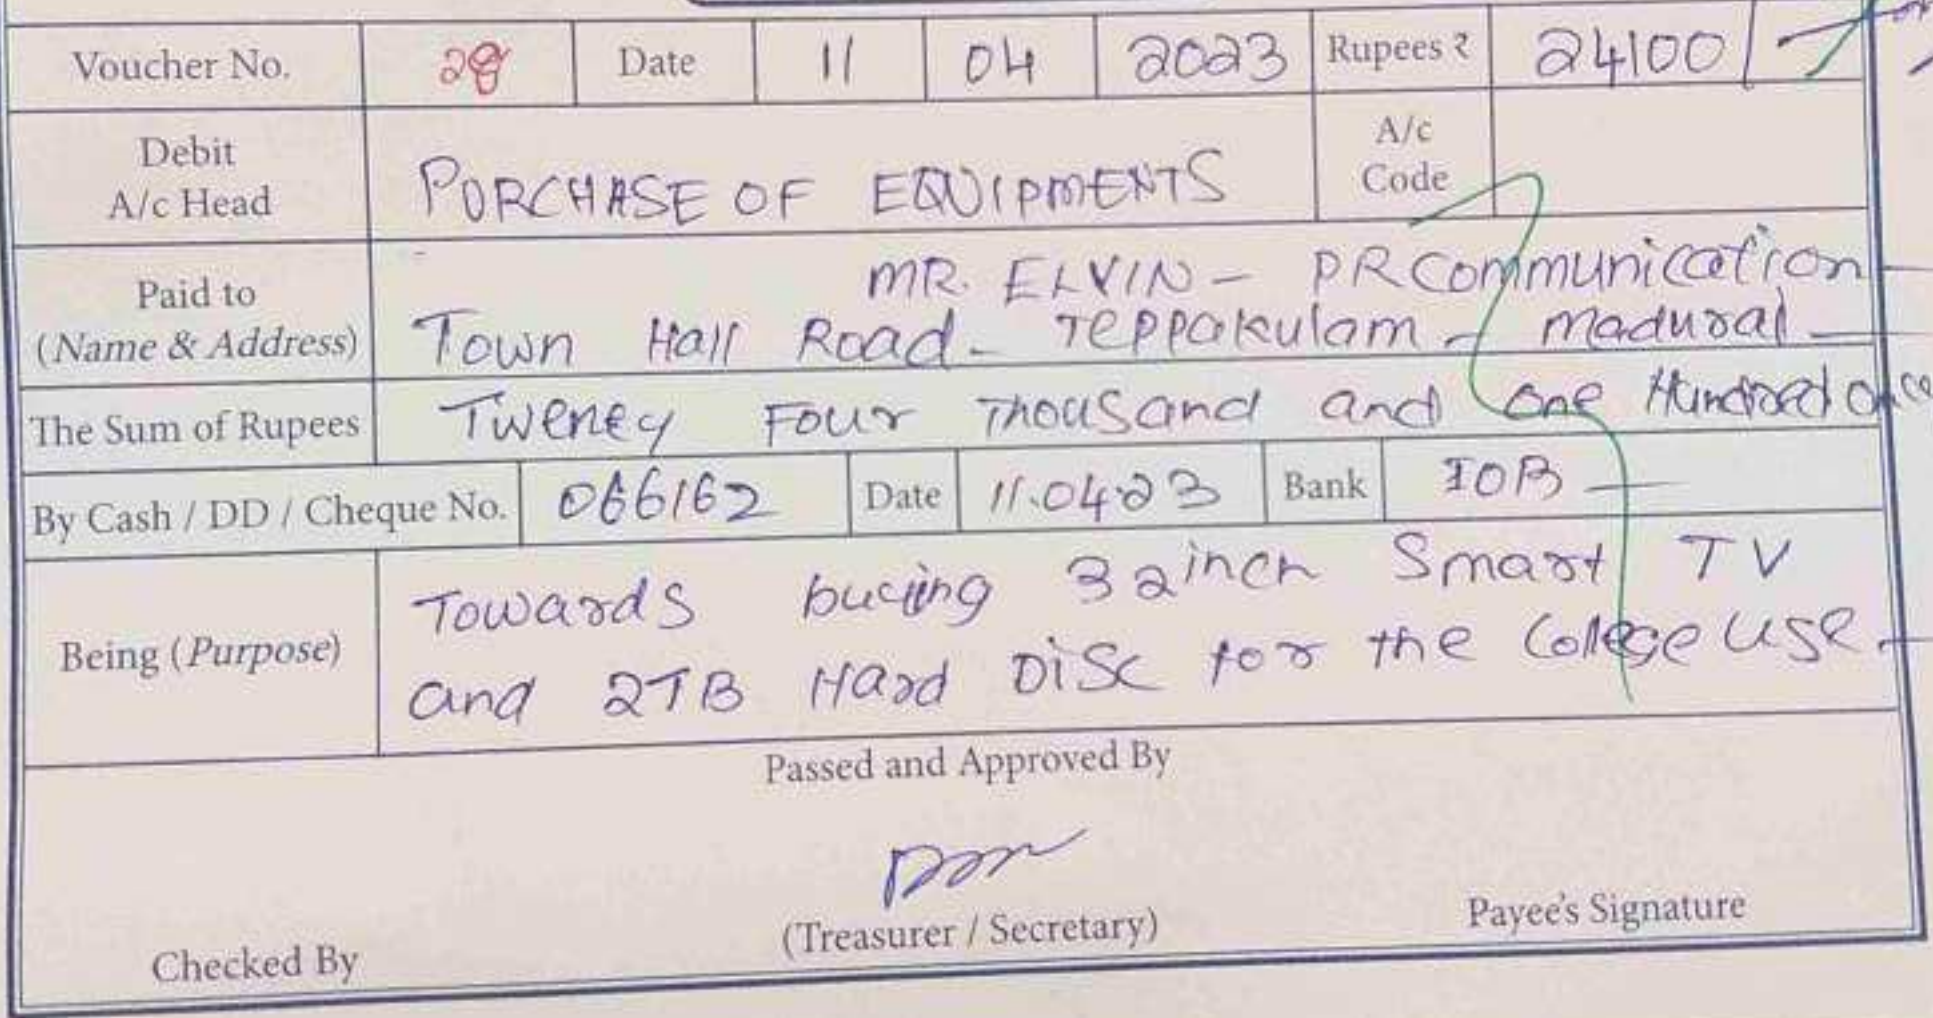 Voucher No. 28 Date 11 04 2023 Rupees ₹ 24100/-
Debit
A/c Head
PURCHASE OF EQUIPMENTS
A/c
Code
Paid to
(Name & Address)
MR. ELVIN - PR Communication
Town Hall Road - Teppakulam - Madurai
The Sum of Rupees Tweney Four Thousand and One Hundred
By Cash / DD / Cheque No. 066162 Date 11.04.23 Bank IOB
Being (Purpose)
Towards buying 32 inch Smart TV
and 2TB Hard Disc for the College use
Passed and Approved By
(Treasurer / Secretary)
Payee's Signature
Checked By